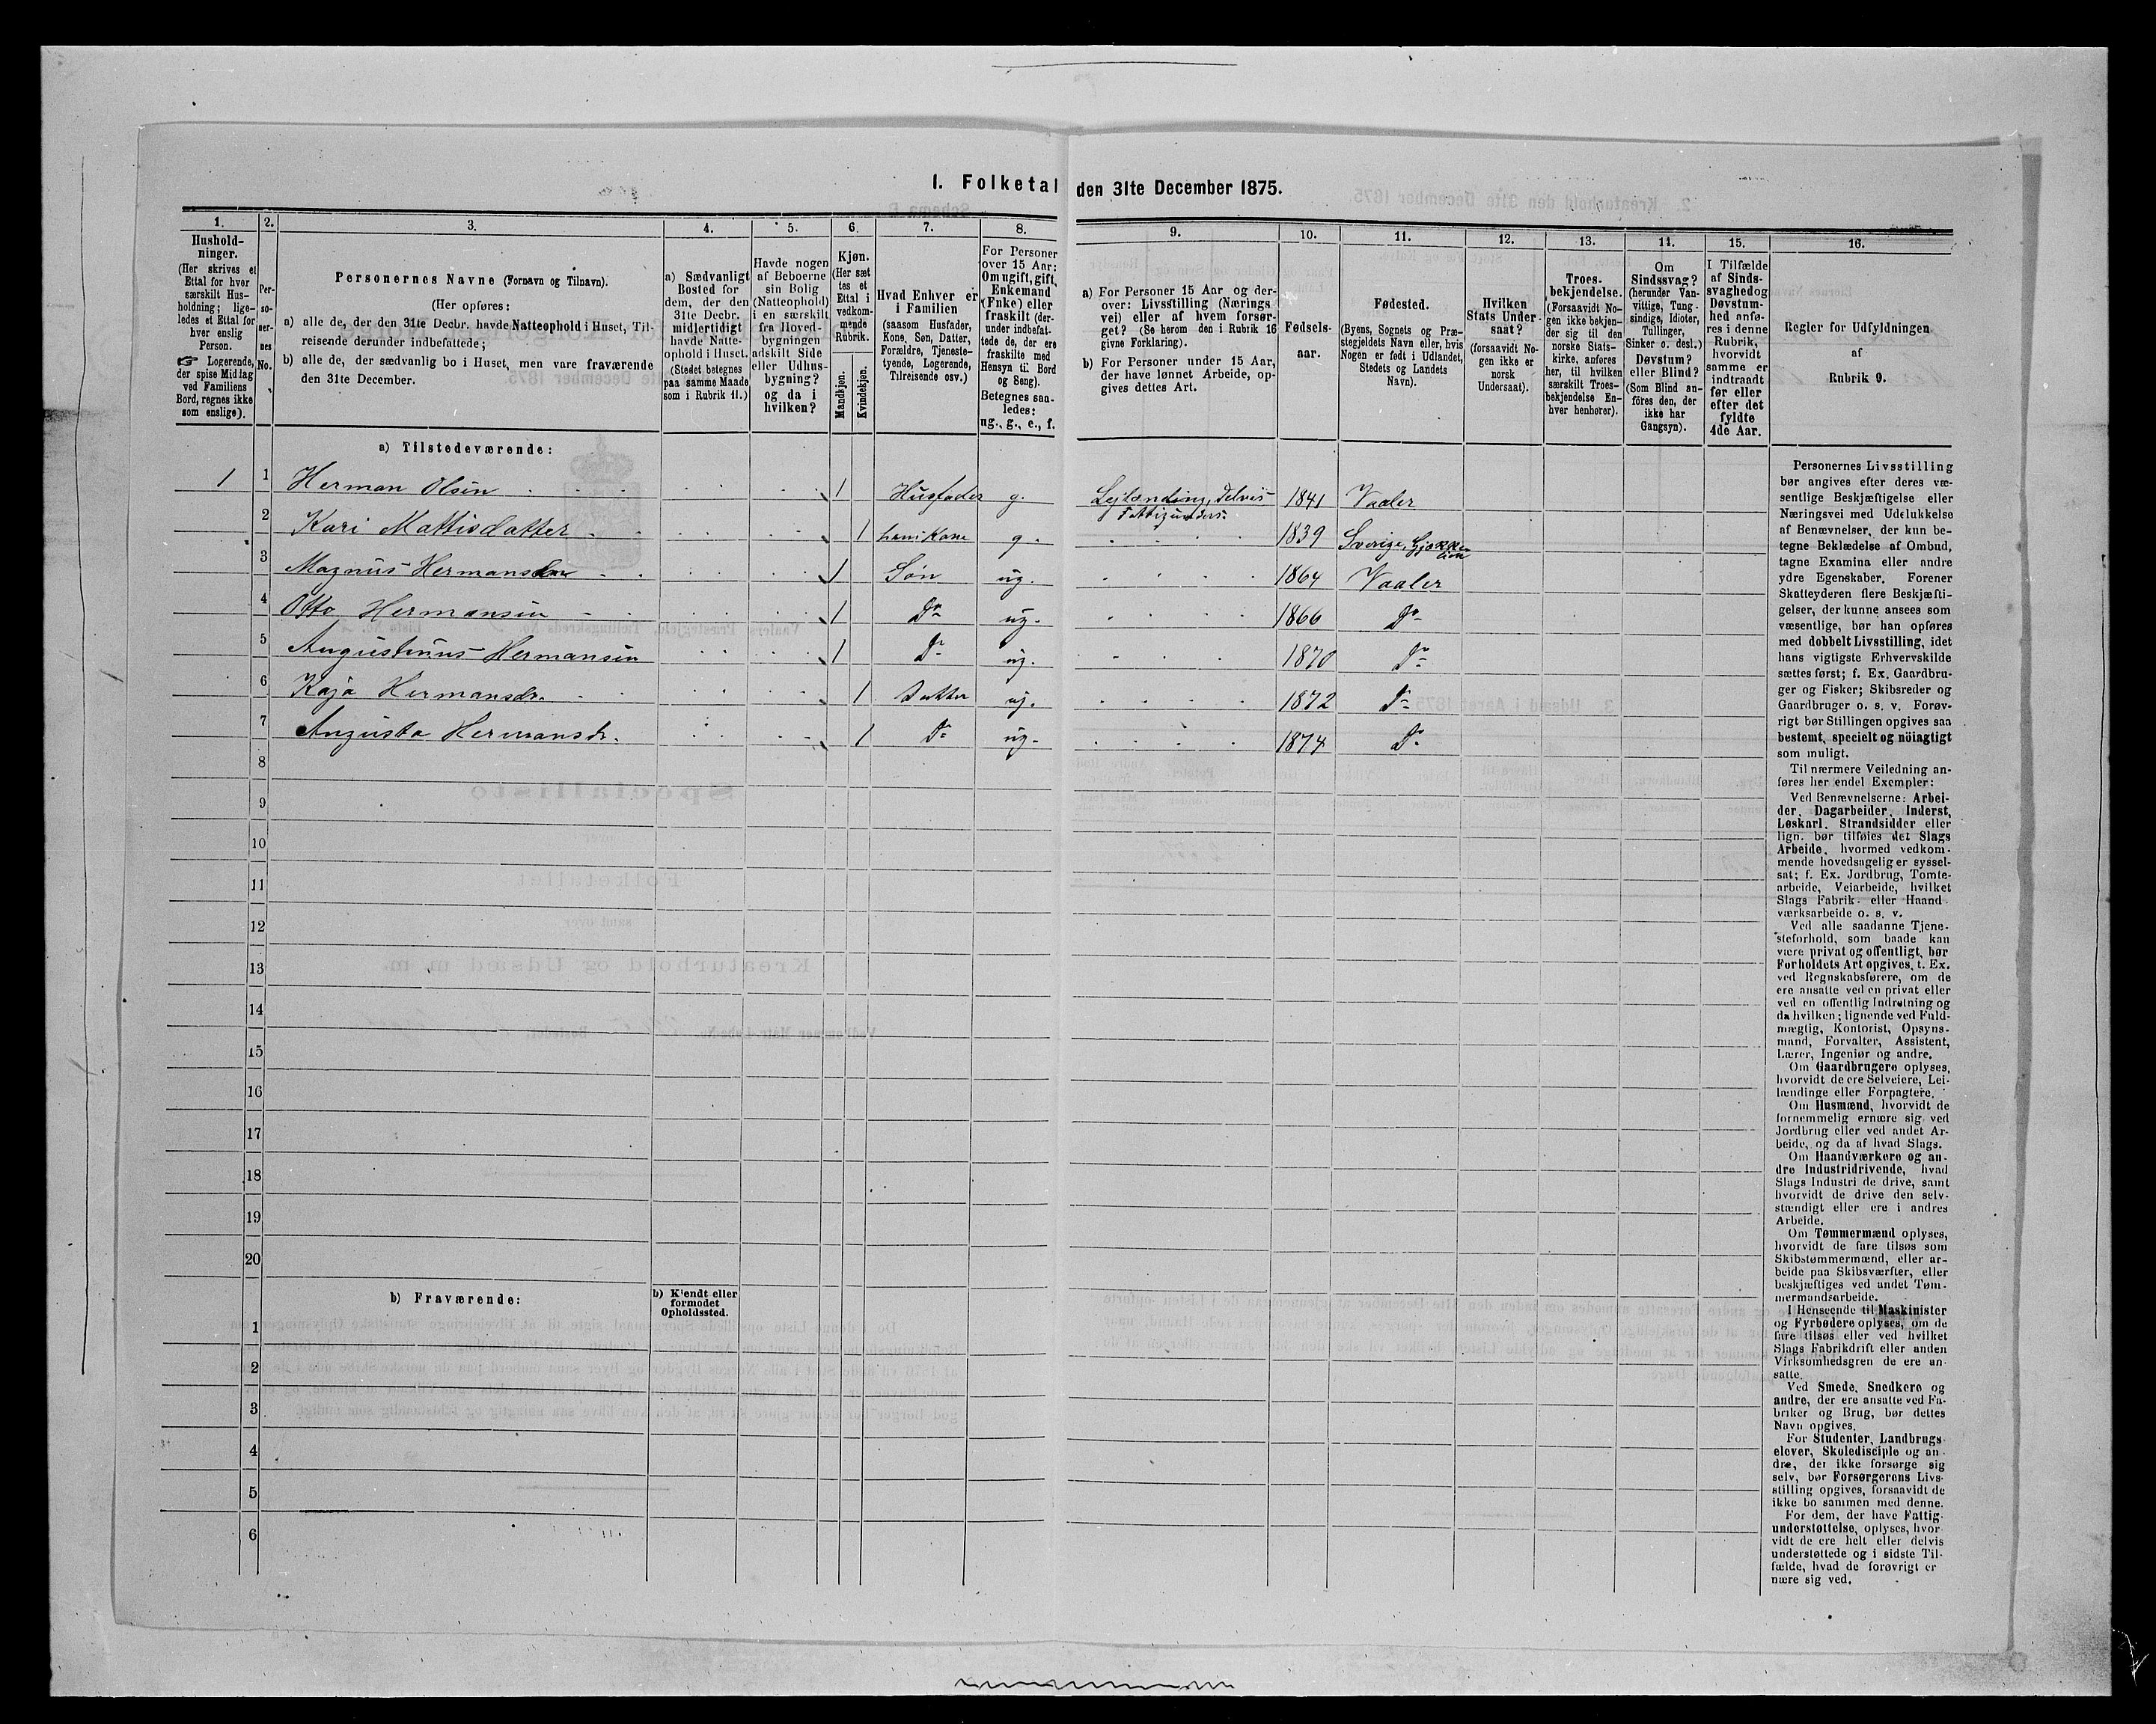 I. Folketal den 31te December 1875.
1.
Hushold-
ninger.
(Her skrives et
Ettal for hver
særskilt Hus-
holdning; lige-
ledes et Ettal for
hver enslig
Person.
☞ Logerende,
der spise Middag
ved Familiens
Bord, regnes ikke
som enslige).
2.
Per-
so-
ner-
nes
No.
3.
Personernes Navne (Fornavn og Tilnavn).
(Her opføres:
a) alle de, der den 31te Decbr. havde Natteophold i Huset, Til-
reisende derunder indbefattede;
b) alle de, der sædvanlig bo i Huset, men vare fraværende
den 31te December.
4.
a) Sædvanligt
Bosted for
dem, der den
31te Decbr.
midlertidigt
havde Natte-
ophold i Huset.
(Stedet betegnes
paa samme Maade
som i Rubrik 11.)
5.
Havde nogen
af Beboerne
sin Bolig
(Natteophold)
i en særskilt
fra Hoved-
bygningen
adskilt Side
eller Udhus-
bygning?
og da i
hvilken?
6.
Kjøn.
(Her sæt
tes et
Ettal i
vedkom-
mende
Rubrik.
Mandkjøn.
Kvindekjøn.
7.
Hvad Enhver er
i Familien
(saasom Husfader,
Kone, Søn, Datter,
Forældre, Tjeneste-
tyende, Logerende,
Tilreisende osv.)
8.
For Personer
over 15 Aar:
Om ugift, gift,
Enkemand
(Enke) eller
fraskilt (der-
under indbefat-
tede de, der ere
fraskilte med
Hensyn til Bord
og Seng).
Betegnes saa-
ledes:
ug., g., e., f.
9.
a) For Personer 15 Aar og der-
over: Livsstilling (Nærings
vei) eller af hvem forsør-
get? (Se herom den i Rubrik 16
givne Forklaring).
b) For Personer under 15 Aar,
der have lønnet Arbeide, op-
gives dettes Art.
10.
Fødsels-
aar.
11.
Fødested.
(Byens, Sognets og Præ-
stegjeldets Navn eller, hvis
Nogen er født i Udlandet,
Stedets og Landets
Navn).
12.
Hvilken
Stats Under-
saat?
(forsaavidt No-
gen ikke er
norsk
Undersaat).
13.
Troes-
bekjendelse.
(Forsaavidt No-
gen ikke bekjen-
der sig til den
norske Stats-
kirke, anføres
her, til hvilken
særskilt Troes-
bekjendelse En-
hver henhører).
14.
Om
Sindssvag?
(herunder Van-
vittige, Tung-
sindige, Idioter,
Tullinger,
Sinker o. desl.)
Døvstum?
eller Blind?
(Som Blind an-
føres den, der
ikke har
Gangsyn).
15.
I Tilfælde
af Sinds-
svaghed og
Døvstum-
hed anfø-
res i denne
Rubrik,
hvorvidt
samme er
indtraadt
før eller
efter det
fyldte
4de Aar.
16.
Regler for Udfyldningen
af
Rubrik 9.
a) Tilstedeværende:
1 1 Herman Olsen 1 Husfader g. Lejlænding, delvis 1841 Vaaler
fattigunders.
2 Kari Mattisdatter 1 hans Kone g. 1839 Sverige,
3 Magnus Hermansen 1 Søn ug. 1864 Vaaler
4 Otto Hermansen 1 Do ug. 1866 Do
5 Augustinus Hermansen 1 Do ug. 1870 Do
6 Kaja Hermansdr. 1 Datter ug. 1872 Do
7 Augusta Hermansdr. 1 Do ug. 1874 Do
8
9
10
11
12
13
14
15
16
17
18
19
20
b) Fraværende:
b) Kjendt eller
formodet
Opholdssted.
1
2
3
4
5
6
Personernes Livsstilling
bør angives efter deres væ-
sentlige Beskjæftigelse eller
Næringsvei med Udelukkelse
af Benævnelser, der kun be-
tegne Beklædelse af Ombud,
tagne Examina eller andre
ydre Egenskaber. Forener
Skatteyderen flere Beskjæfti-
gelser, der kunne ansees som
væsentlige, bør han opføres
med dobbelt Livsstilling, idet
hans vigtigste Erhvervskilde
sættes først; f. Ex. Gaardbru-
ger og Fisker; Skibsreder og
Gaardbruger o. s. v. Forøv-
rigt bør Stillingen opgives saa
bestemt, specielt og nöiagtigt
som muligt.
Til nærmere Veiledning an-
føres her endel Exempler:
Ved Benævnelserne: Arbei-
der, Dagarbeider, Inderst,
Løskarl, Strandsidder eller
lign. bør tilføies det Slags
Arbeide, hvormed vedkom-
mende hovedsagelig er syssel-
sat; f. Ex. Jordbrug, Tomte-
arbeide, Veiarbeide, hvilket
Slags Fabrik- eller Haand
værksarbeide o. s. v.
Ved alle saadanne Tjene-
steforhold, som baade kan
være privat og offentligt, bør
Forholdets Art opgives, t. Ex.
ved Regnskabsførere, om de
ere ansatte ved en privat eller
ved en offentlig Indretning og
da hvilken; lignende ved Fuld-
mægtig, Kontorist, Opsyns-
mand, Forvalter, Assistent,
Lærer, Ingeniør og andre.
Om Gaardbrugere oplyses,
hvorvidt de ere Selveiere, Lei-
lændinge eller Forpagtere.
Om Husmænd, hvorvidt de
fornemmelig ernære sig ved
Jordbrug eller ved andet Ar-
beide, og da af hvad Slags.
Om Haandværkere og an-
dre Industridrivende, hvad
Slags Industri de drive, samt
hvorvidt de drive den selv-
stændigt eller ere i andres
Arbeide.
Om Tømmermænd oplyses,
hvorvidt de fare tilsøs som
Skibstømmermænd, eller ar-
beide paa Skibsværfter, eller
beskjæftiges ved andet Tøm-
mermandsarbeide.
I Henseende til Maskinister
og Fyrbødere oplyses, om de
fare tilsøs eller ved hvilket
Slags Fabrikdrift eller anden
Virksomhedsgren de ere an-
satte.
Ved Smede, Snedkere og
andre, der ere ansatte ved Fa-
briker og Brug, bør dettes
Navn opgives.
For Studenter, Landbrugs-
elever, Skoledisciple og an-
dre, der ikke forsørge sig
selv, bør Forsørgerens Livs-
stilling opgives, forsaavidt de
ikke bo sammen med denne.
For dem, der have Fattig-
understøttelse, oplyses, hvor-
vidt de ere helt eller delvis
understøttede og i sidste Til-
fælde, hvad de forøvrigt er
nære sig ved.